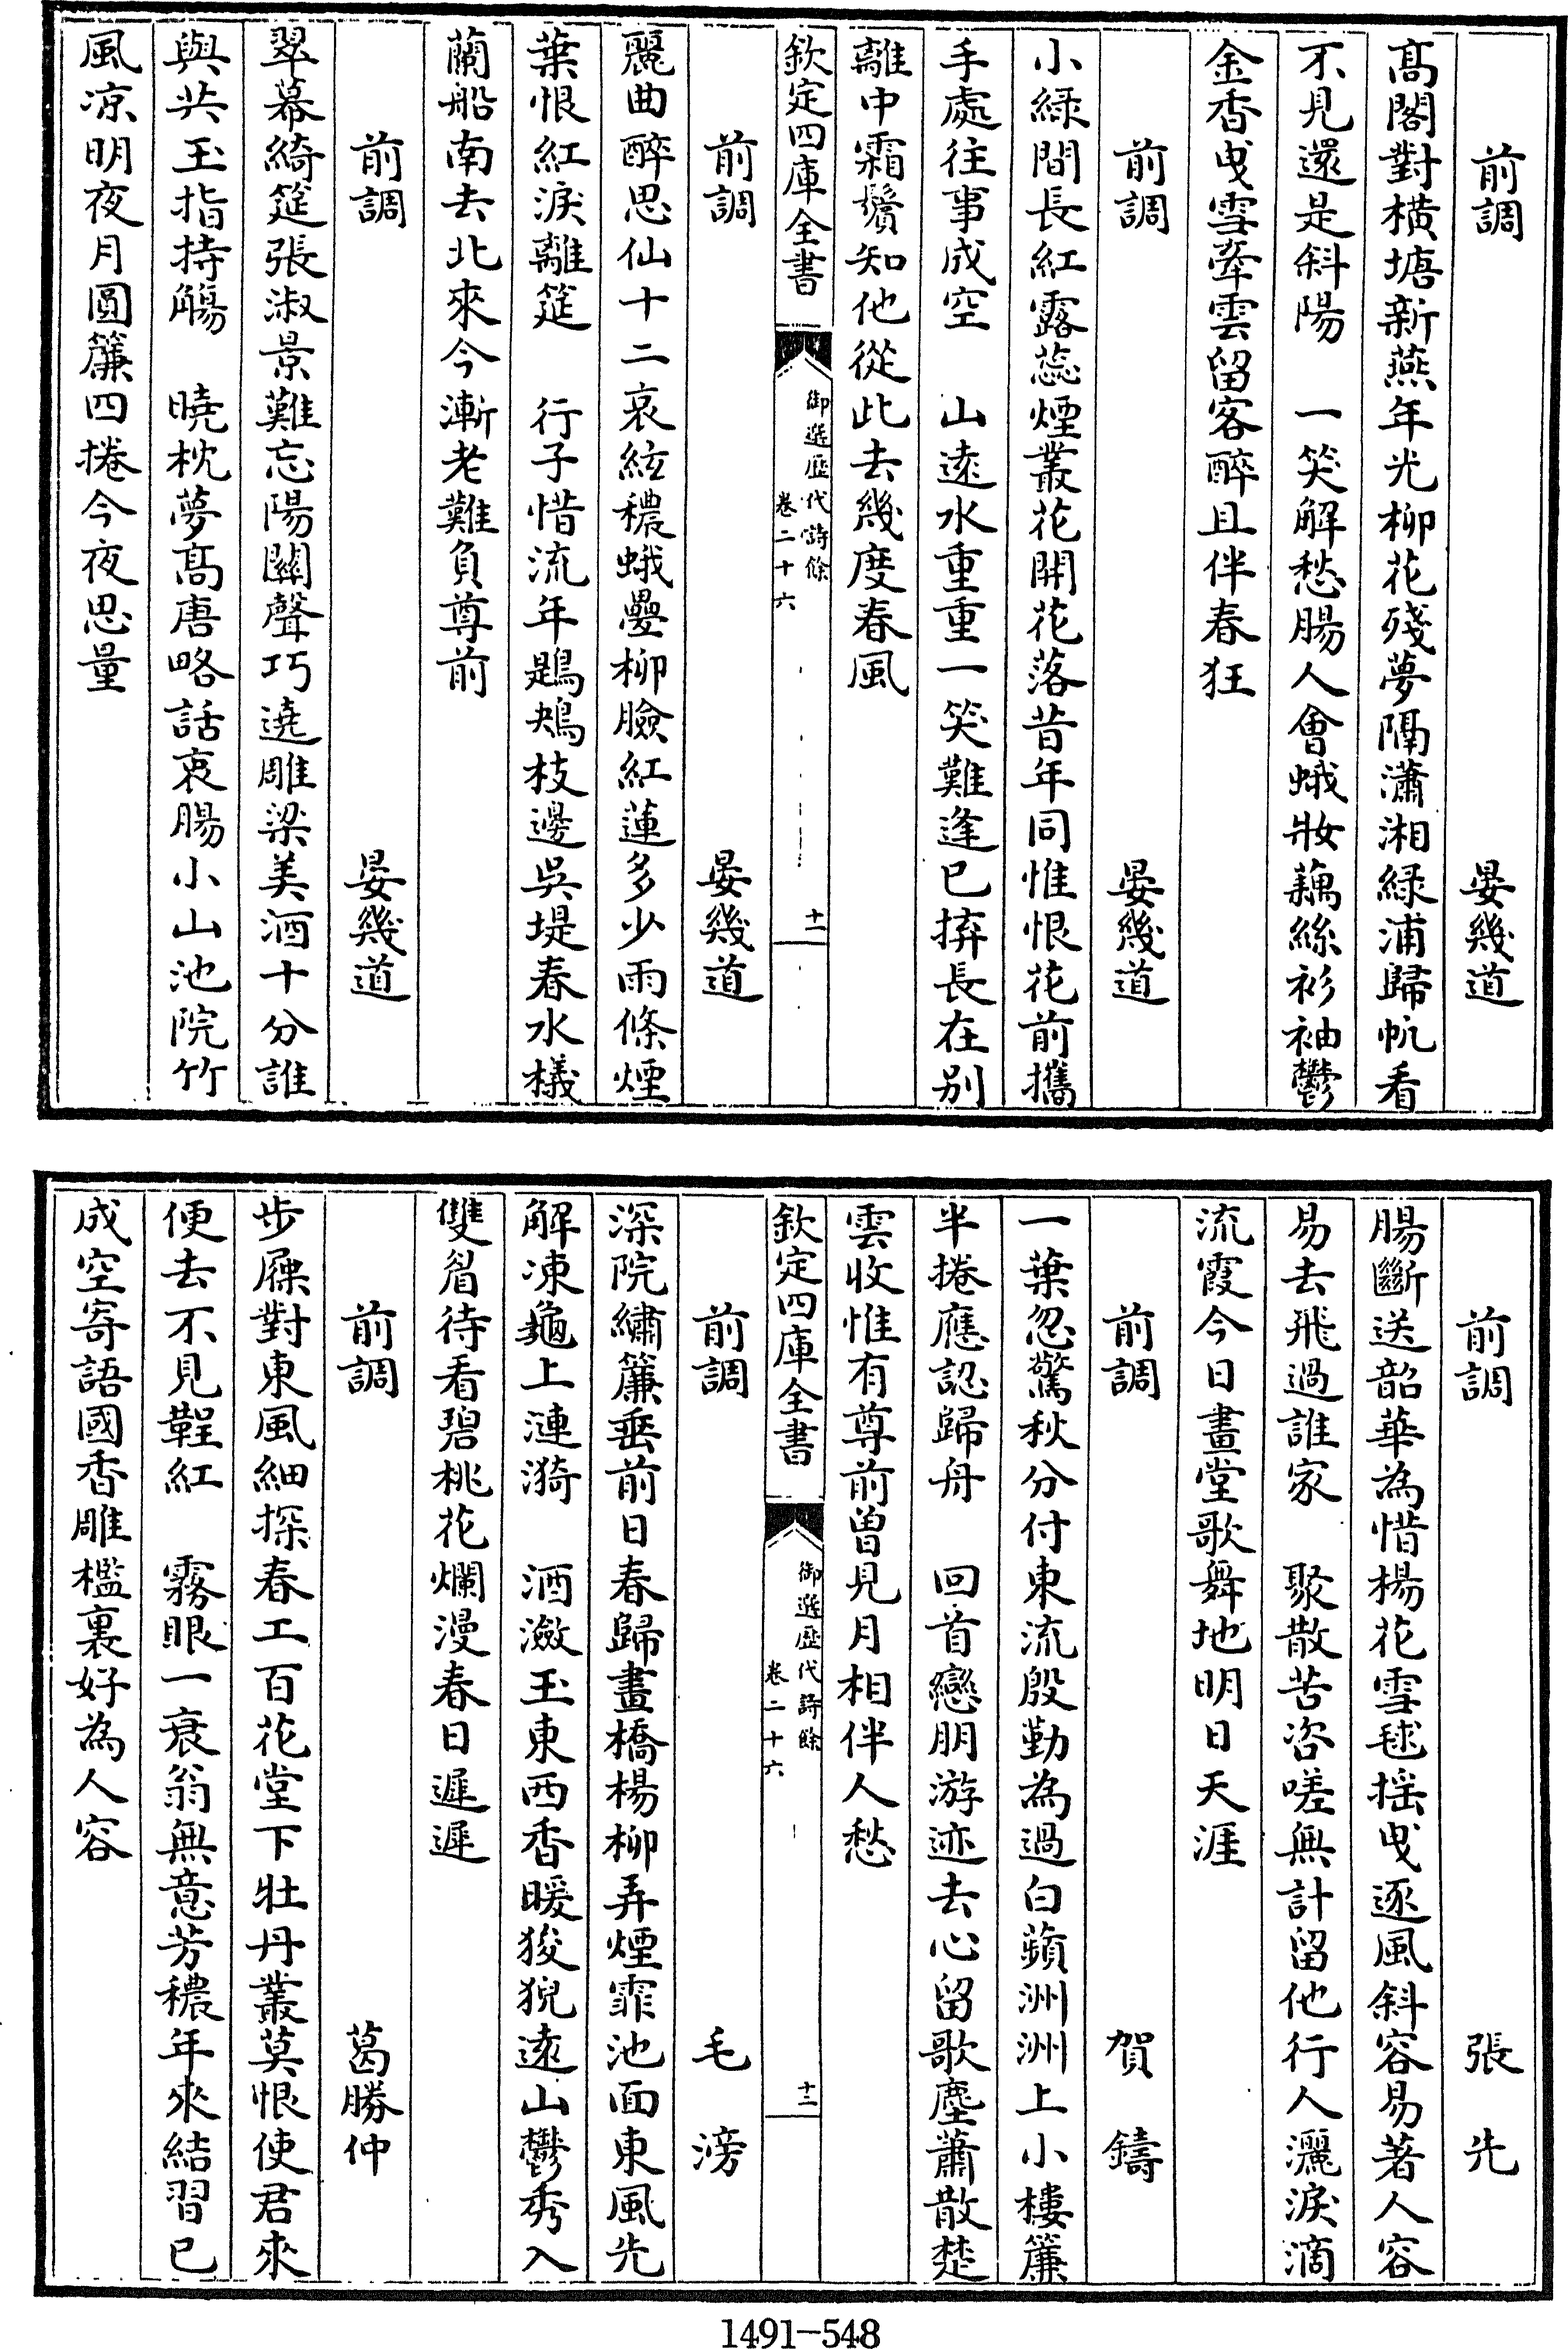 前調　晏幾道
髙閣對橫塘新燕年光柳花殘夢隔瀟湘綠浦歸帆看
不見還是斜陽　一笑解愁腸人會蛾妝藕絲衫袖鬱
金香曵雪牽雲留客醉且伴春狂
前調　晏幾道
小綠間長紅露蕊煙叢花開花落昔年同惟恨花前攜
手處往事成空　山遠水重重一笑難逢已拚長在别
離中霜鬢知他從此去幾度春風
欽定四庫全書
御選歷代詩餘
卷二十六
十一
前調　晏幾道
麗曲醉思仙十二哀絃穠蛾疊柳臉紅蓮多少雨條煙
葉恨紅淚離筵　行子惜流年鶗鴂枝邊吳堤春水檥
蘭船南去北來今漸老難負尊前
前調　晏幾道
翠幕綺筵張淑景難忘陽關聲巧遶雕梁美酒十分誰
與共玉指持觴　曉枕夢髙唐略話衷腸小山池院竹
風凉明夜月圓簾四捲今夜思量
前調　張先
腸斷送韶華為惜楊花雪毬摇曵逐風斜容易著人容
易去飛過誰家　聚散苦咨嗟無計留他行人灑淚滴
流霞今日畫堂歌舞地明日天涯
前調　賀鑄
一葉忽驚秋分付東流殷勤為過白蘋洲洲上小樓簾
半捲應認歸舟　回首戀朋游迹去心留歌塵蕭散楚
雲收惟有尊前曽見月相伴人愁
欽定四庫全書
御選歷代詩餘
卷二十六
十二
前調　毛滂
深院繡簾垂前日春歸畫橋楊柳弄煙霏池面東風先
解凍龜上漣漪　酒瀲玉東西香暖狻猊遠山鬱秀入
雙眉待看碧桃花爛漫春日遲遲
前調　葛勝仲
步屧對東風細探春工百花堂下牡丹叢莫恨使君來
便去不見鞓紅　霧眼一衰翁無意芳穠年來結習已
成空寄語國香雕檻裏好為人容
1491-548